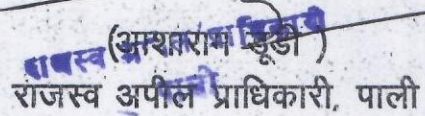 (आशाराम डूडी )
राजस्व अपील प्राधिकारी, पाली